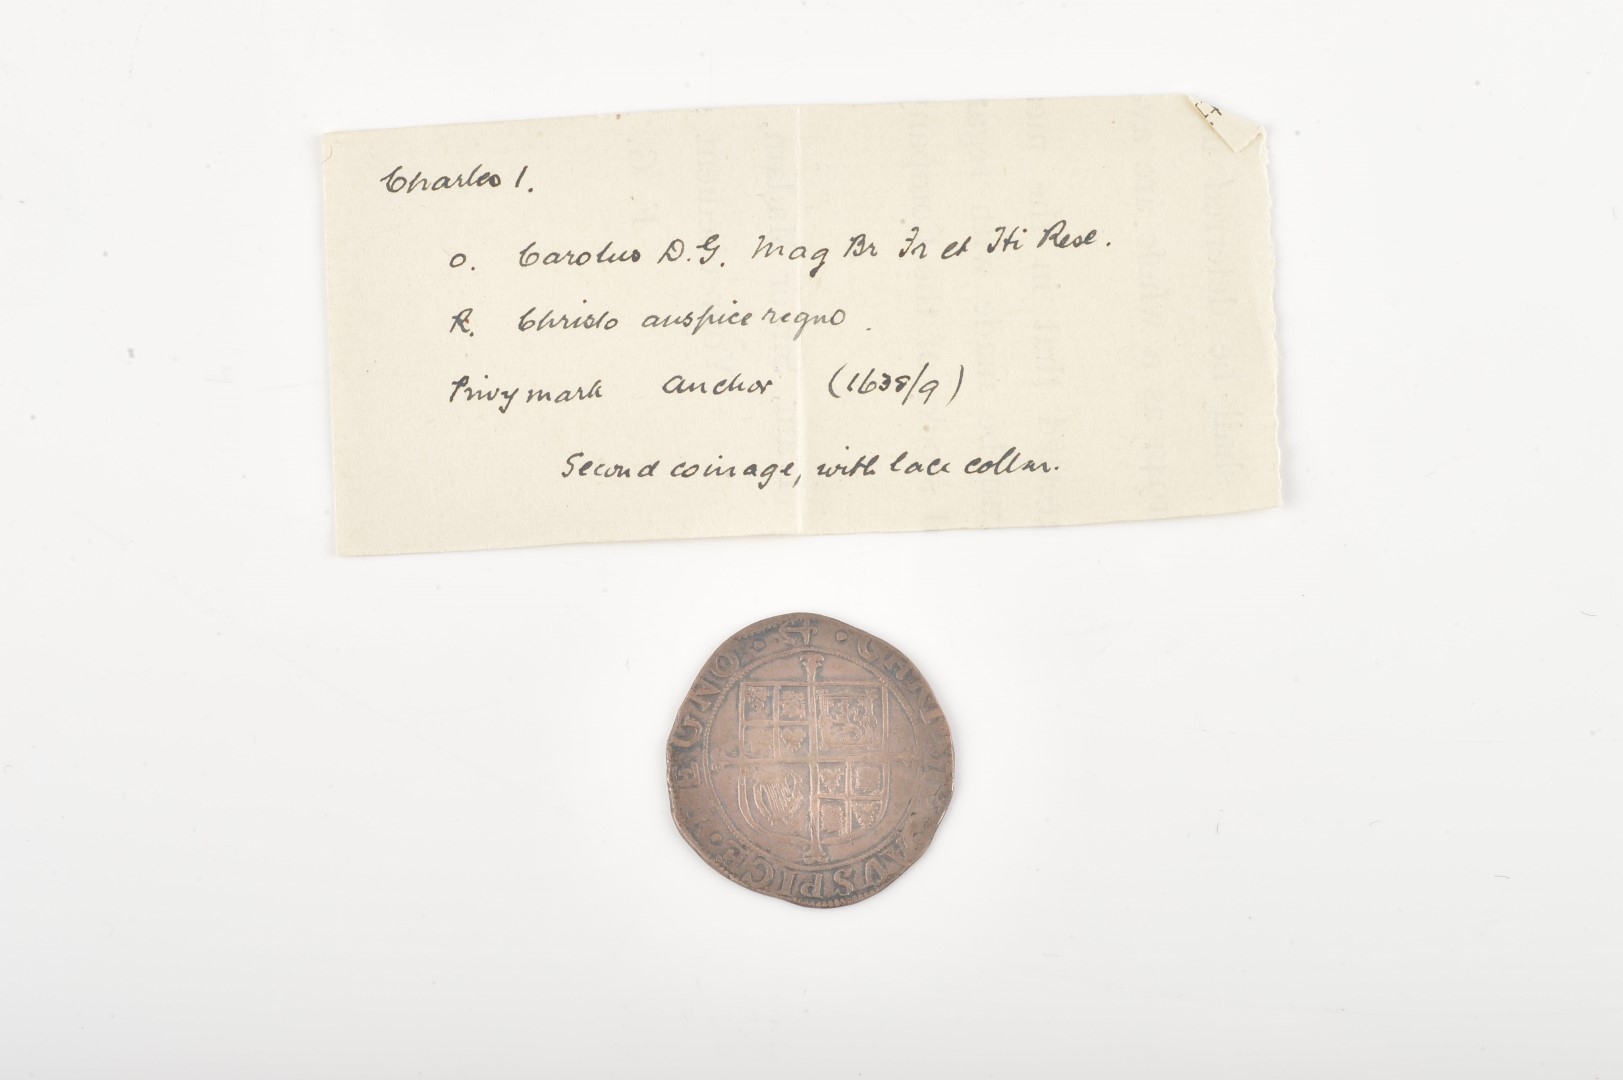 Charles I.
O. Carolus D.G. Mag Br Fr et Hi Rex.
R. Christo auspice regno.
Privy mark anchor (1638/9)
Second coinage, with lace collar.
AUSPICE · REGNO ·